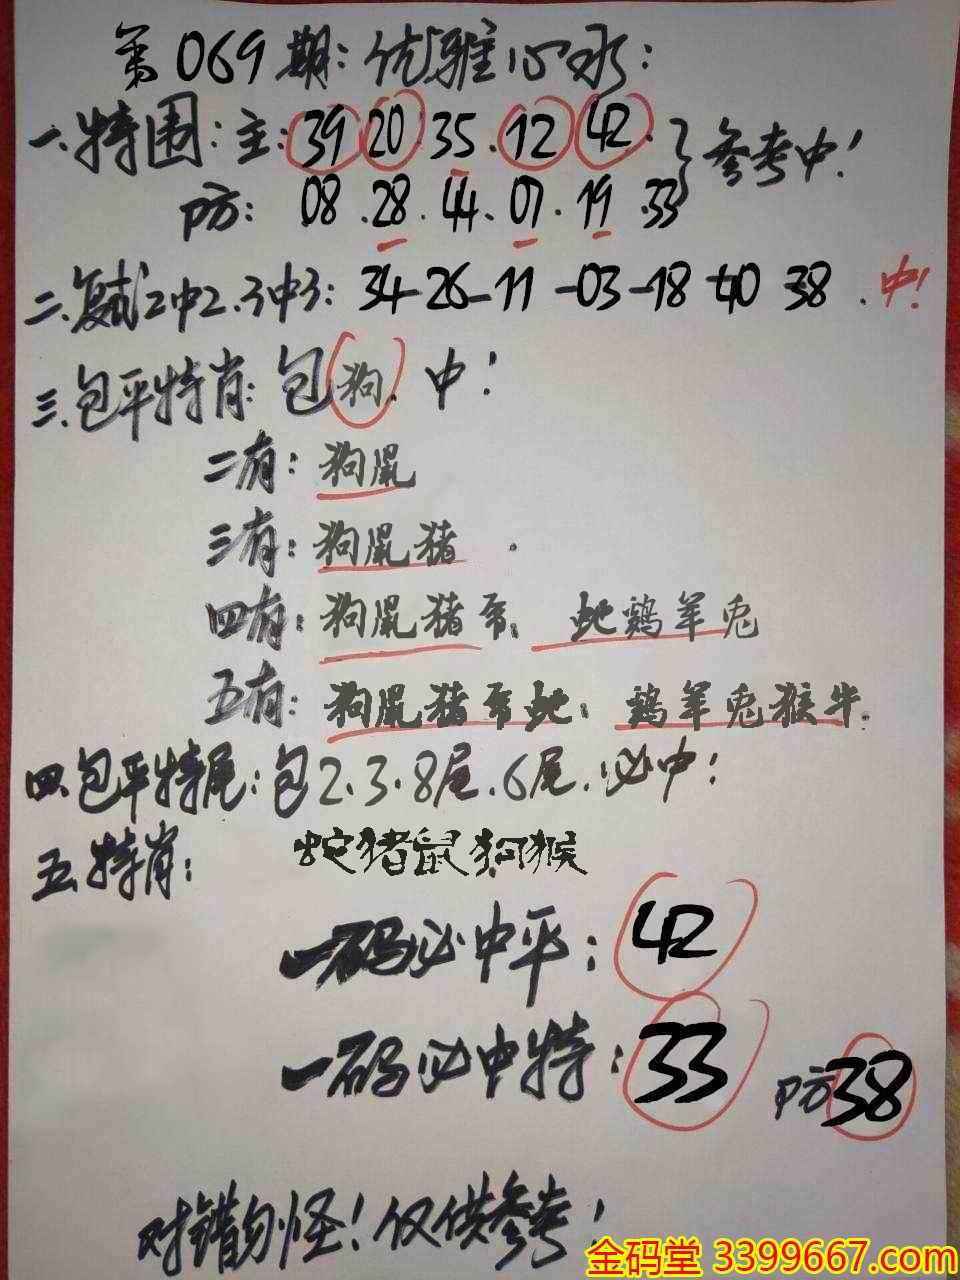 第069期:优雅心水:
一.特围:主:39 20 35.12 42.}参考中!
防: 08.28.44.07.19.33
二.复式2中2.3中3:34-26-11-03-18-40 38.中!
三.包平特肖:包狗.中!
二有:狗鼠
三有:狗鼠猪.
四有:狗鼠猪 蛇鸡羊兔
五有:狗鼠猪 蛇:鸡羊兔猴牛.
四.包平特尾:包2.3.8尾.6尾.必中!
五.特肖: 蛇猪鼠狗猴
一码必中平:42
一码必中特:33 防38
对错勿怪!仅供参考!
金码堂 3399667.com